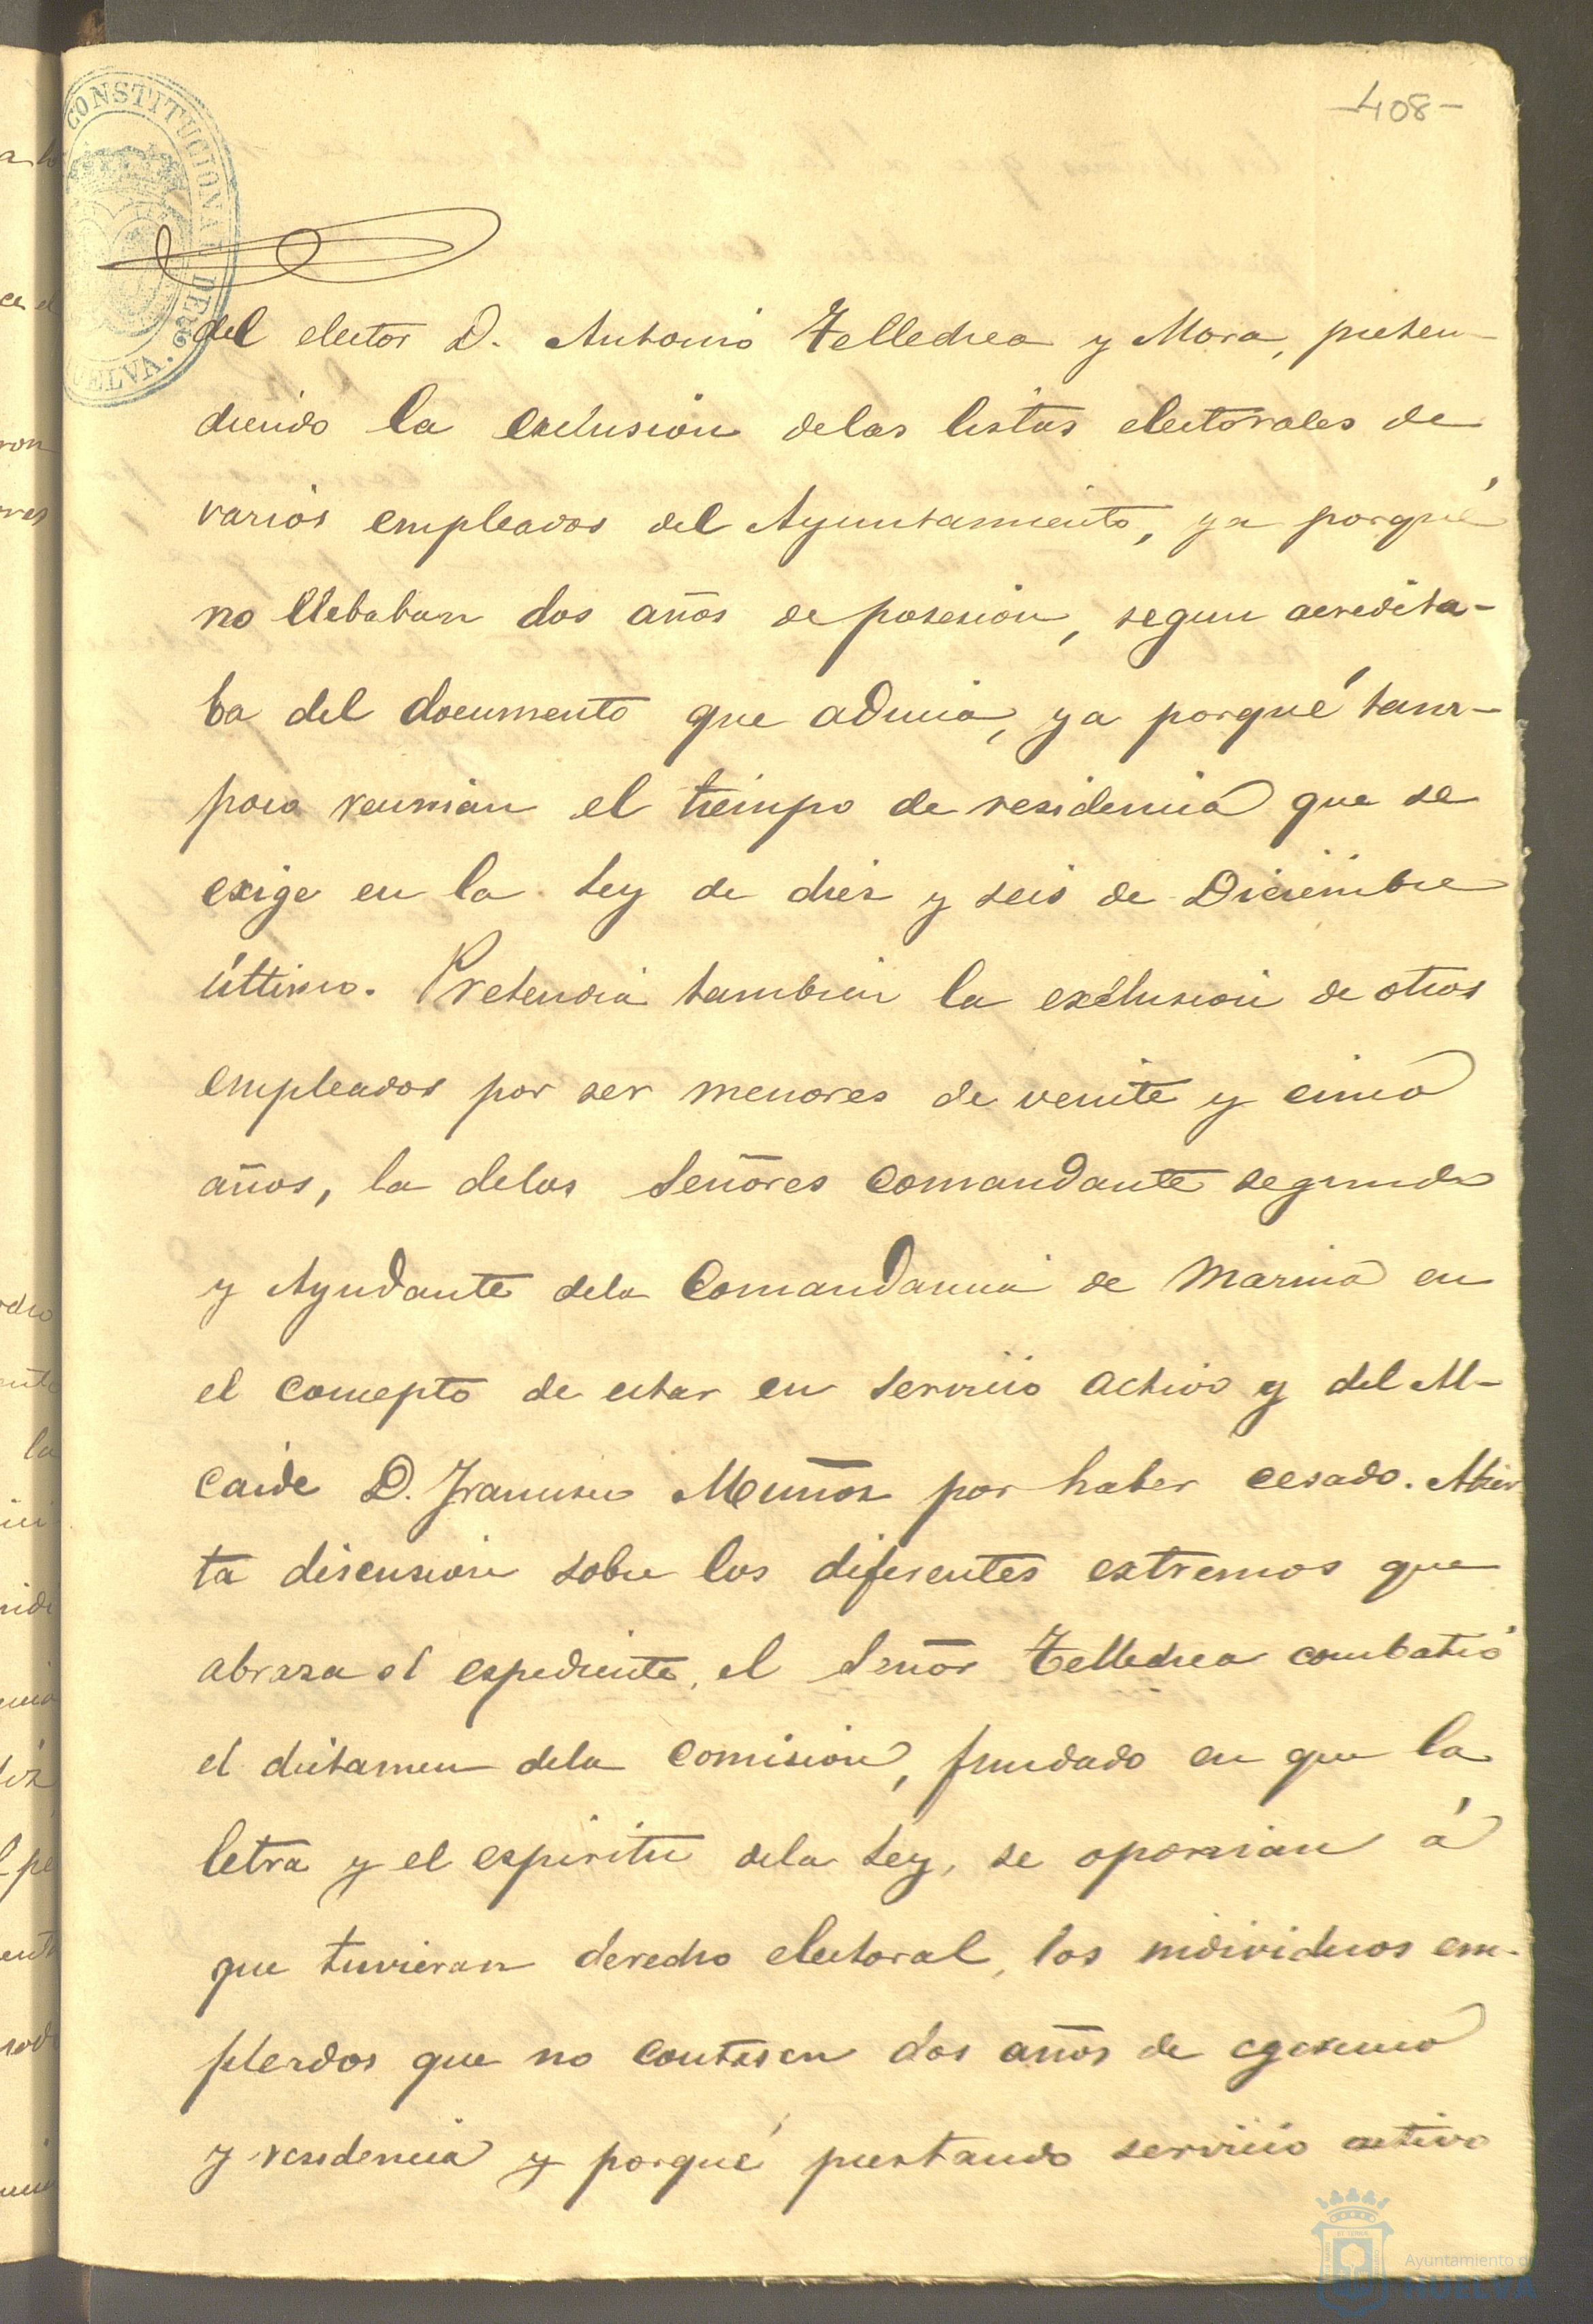 -408-
CONSTITUCIONAL DE
HUELVA.
del elector D. Antonio Telledrea y Mora, preten-
diendo la exclusion delas listas electorales de
varios empleados del Ayuntamiento, ya porqué
no llebaban dos años de posesion, segun acredita-
ba del documento que aducia, ya porqué tam-
poco reunian el tiempo de residencia que se
exige en la Ley de diez y seis de Diciembre
último. Pretendia tambien la exclusion de otros
empleados por ser menores de veinte y cinco
años, la delos Señores Comandante segundo
y Ayudante dela Comandancia de Marina en
el concepto de estar en servicio activo y del Al-
caide D. Francisco Muñoz por haber cesado. Abier
ta discusion sobre los diferentes extremos que
abraza el espediente, el Señor Telledrea combatió
el dictamen dela Comision, fundado en que la
letra y el espiritu dela Ley, se oponian á
que tuvieran derecho electoral, los individuos em-
pleados que no contasen dos años de egercicio
y residencia y porqué prestando servicio activo
Ayuntamiento de
HUELVA